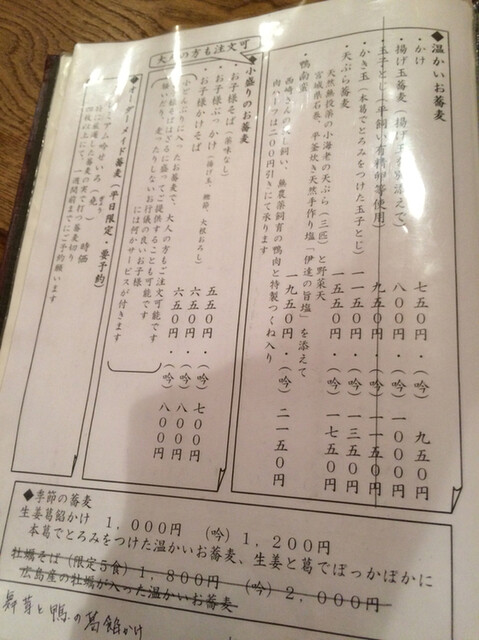 ◆温かいお蕎麦
・かけ 七五〇円・(吟) 九五〇円
・揚げ玉蕎麦(揚げ玉 別添えで) 八〇〇円・(吟) 一〇〇〇円
・玉子とじ(平飼い有精卵等使用) 九五〇円・(吟) 一一五〇円
・かき玉(本葛でとろみをつけた玉子とじ) 一一五〇円・(吟) 一三五〇円
・天ぷら蕎麦 一五五〇円・(吟) 一七五〇円
天然無投薬の小海老の天ぷら(三匹)と野菜天
宮城県石巻、平釜炊き天然手作り塩「伊達の旨塩」を添えて
・鴨南蛮 一九五〇円・(吟) 二一五〇円
西崎さんの 飼い、無農薬飼育の鴨肉と特製つくね入り
肉一 二〇〇円引きにて承ります
大人の方も注文可
◆小盛りのお蕎麦
・お子様そば(薬味なし) 五五〇円・(吟) 七〇〇円
・お子様ぶっかけ(揚げ玉、鰹節、大根おろし) 六五〇円・(吟) 八〇〇円
・お子様かけそば 六五〇円・(吟) 八〇〇円
小どんぶりに入ったお蕎麦で、大人の方もご注文可能です
ざるに盛ってご提供することも可能です
走ったりしないお行儀の良いお子様
には何かサービスが付きます
◆オーダーメイド蕎麦(平日限定・要予約)
ミアム吟せいろ 時価
した蕎麦の実で打つ蕎麦切り
四枚以上にて、一週間前までにご予約願います
◆季節の蕎麦
生姜葛餡かけ 1,000円 (吟) 1,200円
本葛でとろみをつけた温かいお蕎麦、生姜と葛でぽっかぽかに
牡蠣そば(限定5食) 1,800円 (吟) 2,000円
広島産の牡蠣が入った温かいお蕎麦
舞茸と鴨の葛餡かけ